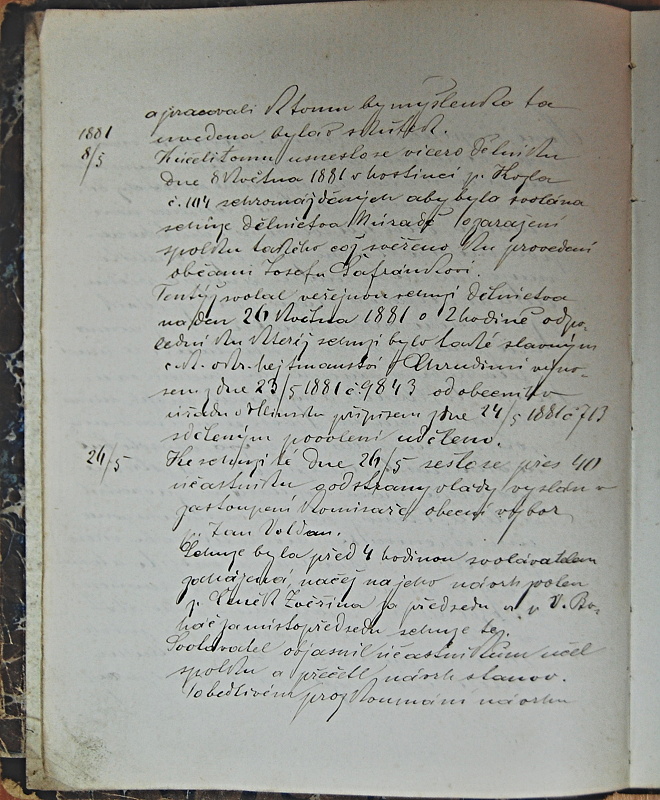 a pracovali k tomu by myšlenka ta
uvedena byla v skutek.
1881
8/5
K účeli tomu usneslo se vícero dělníku
dne 8 Května 1881 v hostinci p. Kogla
č. 104 schromážděných aby byla svolána
schůze dělnictva k úradě
spolku takého což svěřeno ku provedení
občanu Josefu Šafránkovi.
Tentýž svolal veřejnou schuzi dělnictva
na den 26 Května 1881 o 2 hodině odpo-
lední ku kteréj schuzi bylo také slavným
c. k. okr. hejtmanství v Chrudimi výno-
sem dne 23/5 1881 č. 9843 od obecního
úřadu v Hlinsku přípisem dne 24/5 1881 č 713
sděleným povolení uděleno.
26/5
Ke schuzi té dne 26/5 sešlo se přes 40
účastníku od strany vlády vyslán v
zastoupení komisaře obecní výbor
p. Jan Voldan.
Schuze byla před 4 hodinou svolavatelem
zahájena, načež na jeho návrh zvolen
p. Čeněk Zvěřina za předsedu a p. V. Bo-
háč za místopředsedu schuze tej.
Svolavatel objasnil účastníkům účel
spolku a přečetl návrh stanov.
Po bedlivém prozkoumání návrhu